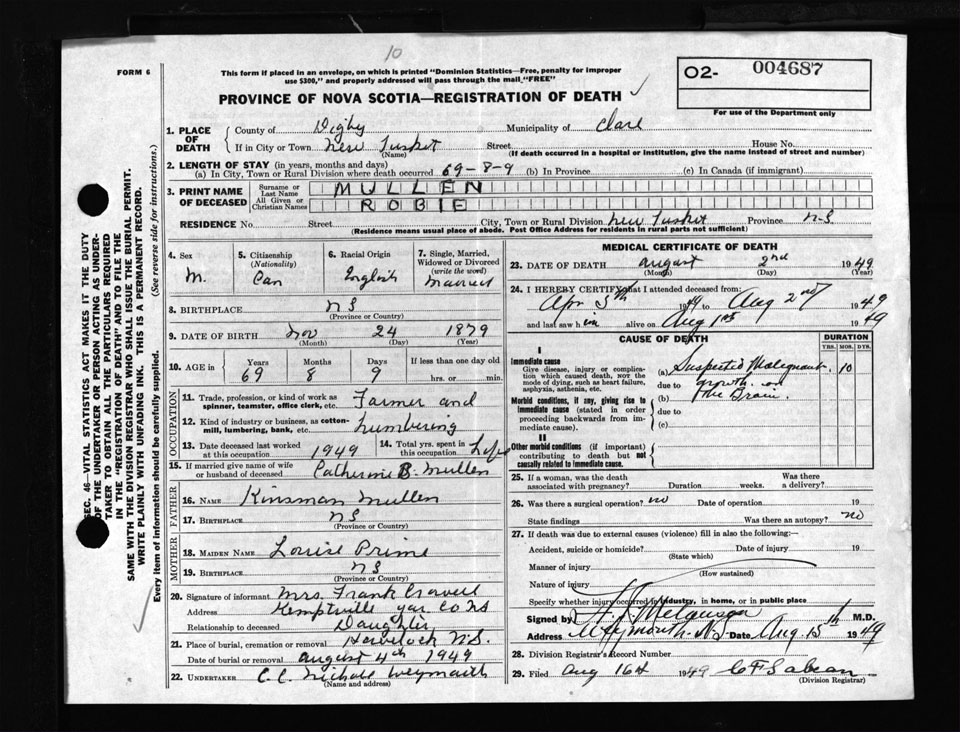 10
FORM 6
This form if placed in an envelope, on which is printed "Dominion Statistics—Free, penalty for improper
use $300," and properly addressed will pass through the mail "FREE"
PROVINCE OF NOVA SCOTIA—REGISTRATION OF DEATH
O2- 004687
For use of the Department only
SEC. 46—VITAL STATISTICS ACT MAKES IT THE DUTY
OF THE UNDERTAKER OR PERSON ACTING AS UNDER-
TAKER TO OBTAIN ALL THE PARTICULARS REQUIRED
IN THE "REGISTRATION OF DEATH" AND TO FILE THE
SAME WITH THE DIVISION REGISTRAR WHO SHALL ISSUE THE BURIAL PERMIT.
WRITE PLAINLY WITH UNFADING INK. THIS IS A PERMANENT RECORD.
Every item of information should be carefully supplied. (See reverse side for instructions.)
1. PLACE OF DEATH County of Digby Municipality of Clare
If in City or Town New Tusket Street House No.
(Name) (If death occurred in a hospital or institution, give the name instead of street and number)
2. LENGTH OF STAY (in years, months and days)
(a) In City, Town or Rural Division where death occurred 69-8-9 (b) In Province (c) In Canada (if immigrant)
3. PRINT NAME OF DECEASED Surname or Last Name MULLEN
All Given or Christian Names ROBIE
RESIDENCE No. Street City, Town or Rural Division New Tusket Province N-S
(Residence means usual place of abode. Post Office Address for residents in rural parts not sufficient)
4. Sex M.
5. Citizenship (Nationality) Can
6. Racial Origin English
7. Single, Married, Widowed or Divorced (write the word) Married
8. BIRTHPLACE NS
(Province or Country)
9. DATE OF BIRTH Nov 24 1879
(Month) (Day) (Year)
10. AGE in Years 69 Months 8 Days 9 If less than one day old hrs. or min.
OCCUPATION
11. Trade, profession, or kind of work as spinner, teamster, office clerk, etc. Farmer and
12. Kind of industry or business, as cotton-mill, lumbering, bank, etc. Lumbering
13. Date deceased last worked at this occupation 1949 14. Total yrs. spent in this occupation Life
15. If married give name of wife or husband of deceased Catherine B. Mullen
FATHER
16. NAME Kinsman Mullen
17. BIRTHPLACE NS
(Province or Country)
MOTHER
18. MAIDEN NAME Louise Prime
19. BIRTHPLACE NS
(Province or Country)
20. Signature of informant Mrs. Frank
Address Kemptville Yar. Co NS
Relationship to deceased Daughter
21. Place of burial, cremation or removal Havelock N.S.
Date of burial or removal August 4th 1949
22. UNDERTAKER C.C. Nichols Weymouth
(Name and address)
MEDICAL CERTIFICATE OF DEATH
23. DATE OF DEATH August 2nd 1949
(Month) (Day) (Year)
24. I HEREBY CERTIFY that I attended deceased from:
Apr 5th 1949 to Aug 2nd 1949
and last saw him alive on Aug 1st 1949
CAUSE OF DEATH DURATION
YRS. MOS. DYS.
I
Immediate cause
Give disease, injury or complication which caused death, not the mode of dying, such as heart failure, asphyxia, asthenia, etc.
(a) Suspected Malignant 10
due to growth on
(b) the Brain.
Morbid conditions, if any, giving rise to immediate cause (stated in order proceeding backwards from immediate cause).
due to
(c)
II
Other morbid conditions (if important) contributing to death but not causally related to immediate cause.
25. If a woman, was the death associated with pregnancy? Duration weeks. Was there a delivery?
26. Was there a surgical operation? no Date of operation 19
State findings Was there an autopsy? no
27. If death was due to external causes (violence) fill in also the following:—
Accident, suicide or homicide? Date of injury 19
(State which)
Manner of injury
(How sustained)
Nature of injury
Specify whether injury occurred in industry, in home, or in public place
Signed by M.D.
Address Weymouth NS Date Aug. 15th 1949
28. Division Registrar's Record Number
29. Filed Aug 16th 1949 C F Sabean
(Division Registrar)